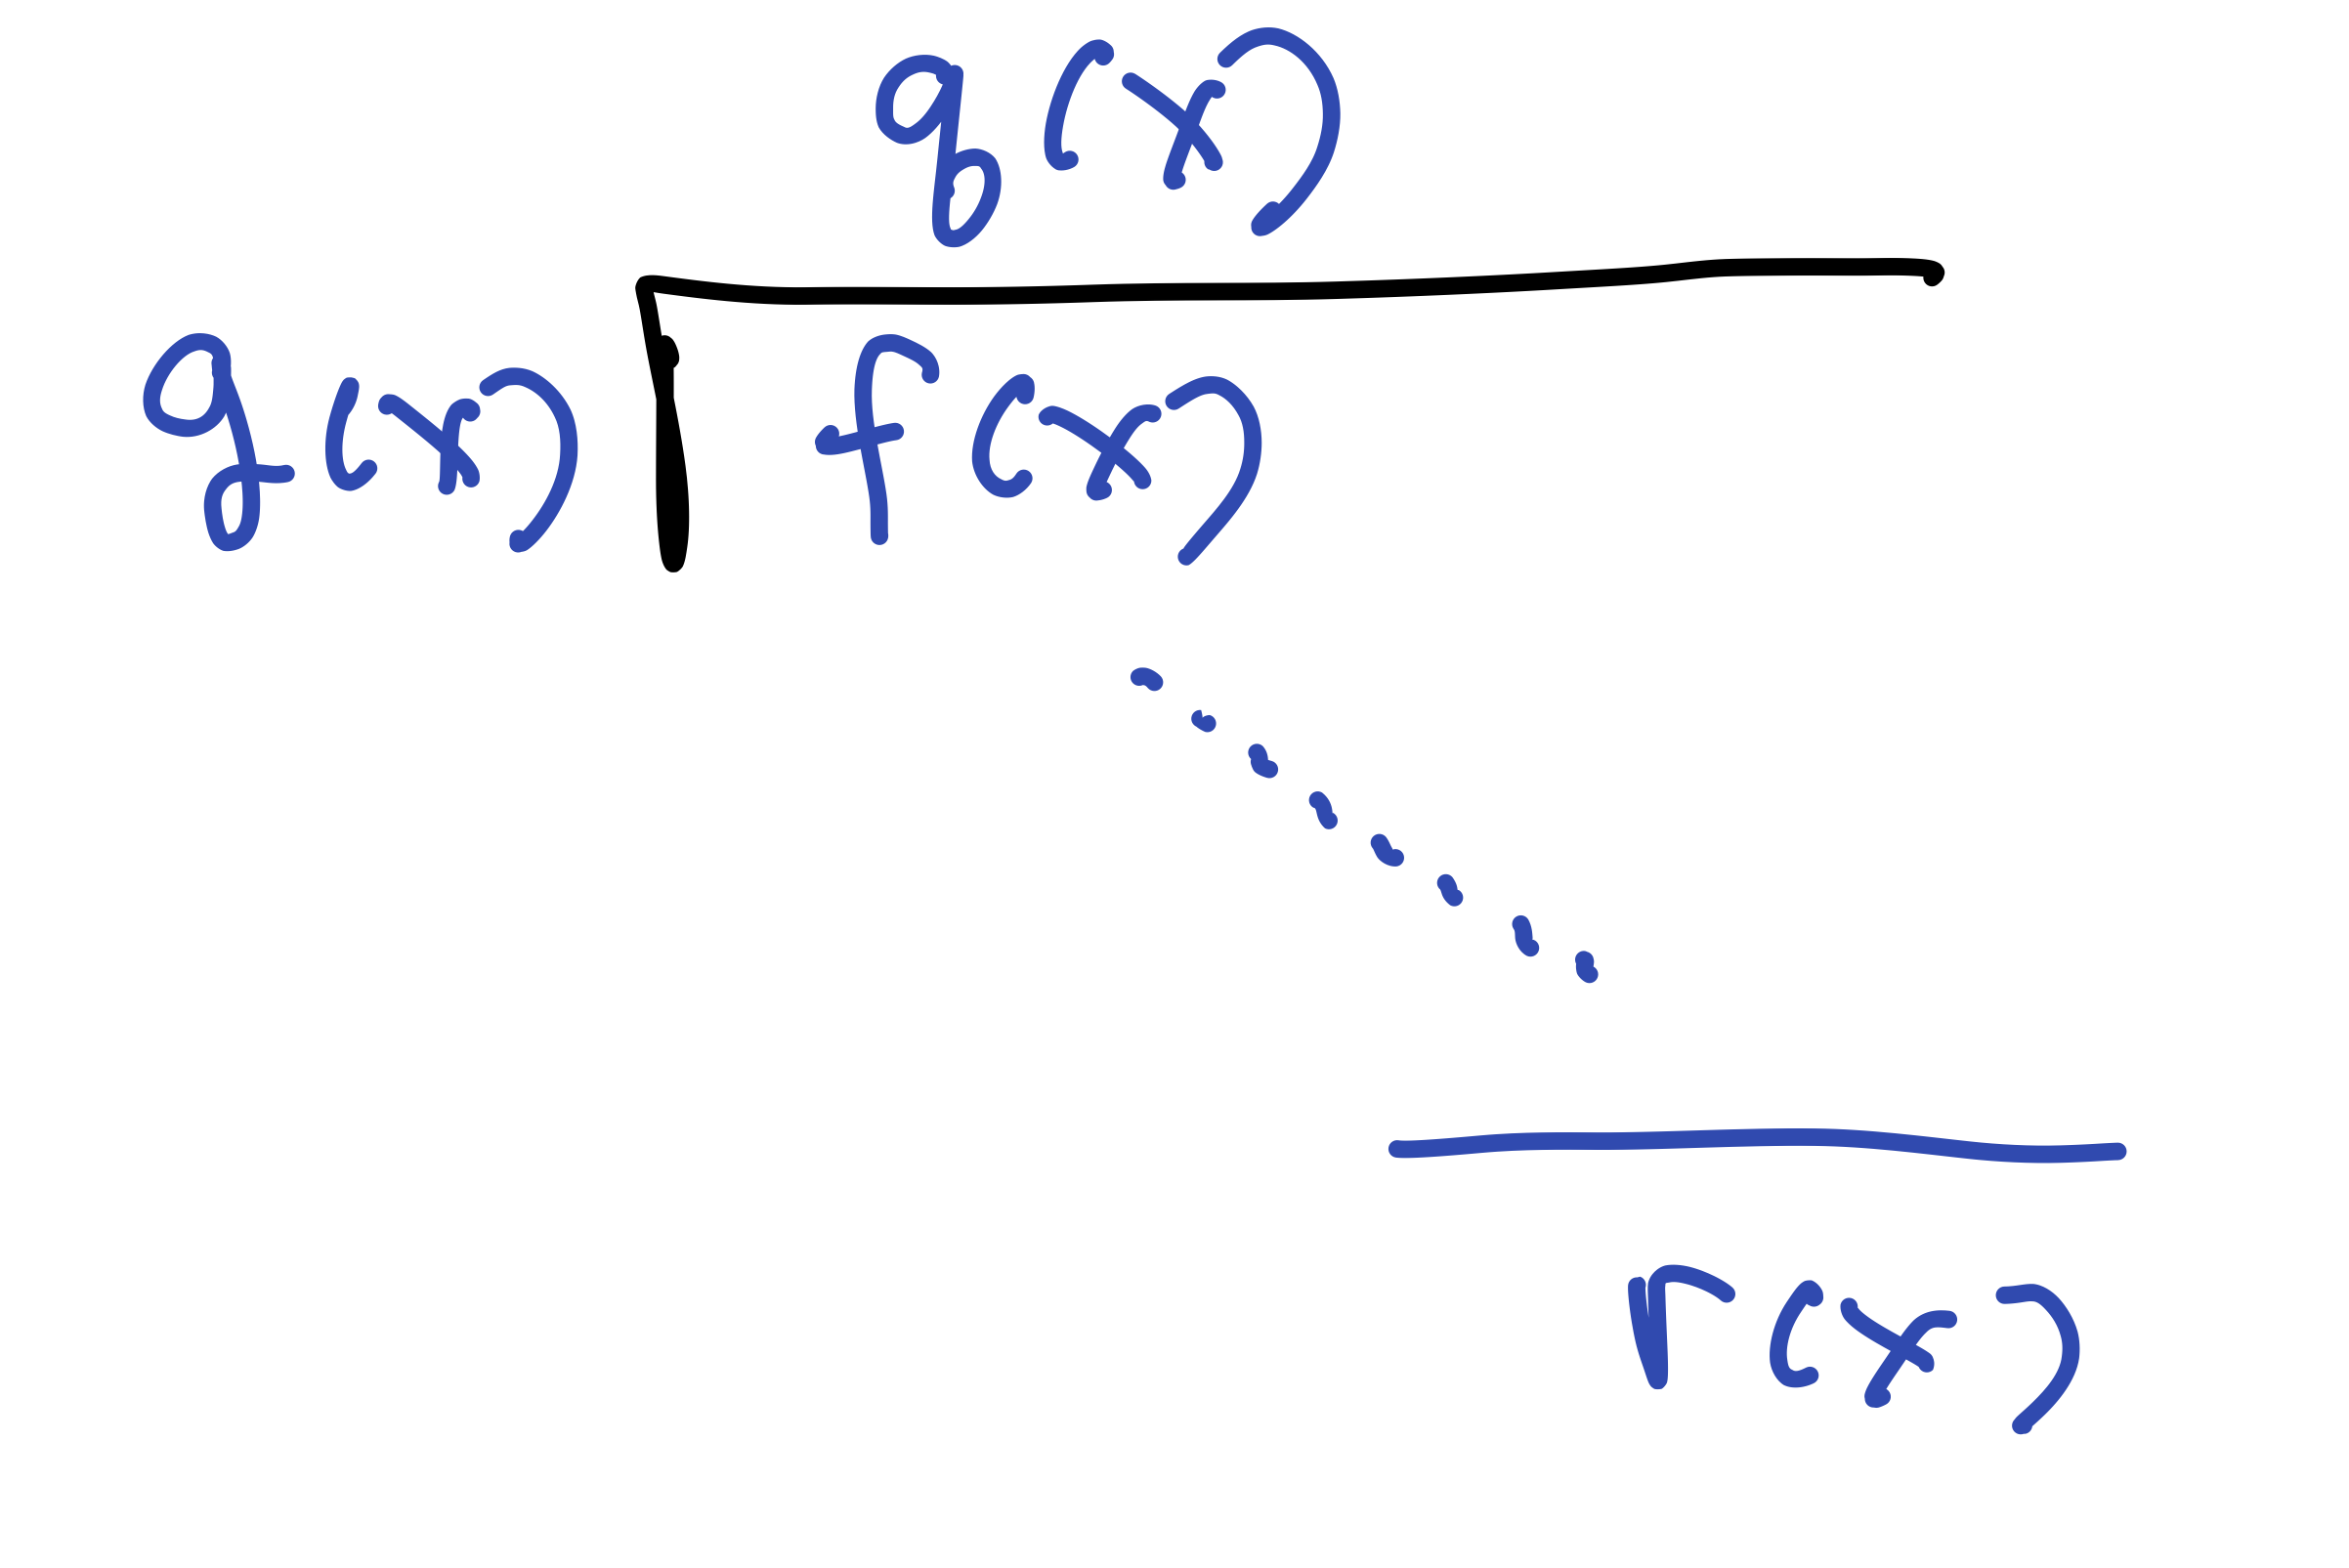 q(x)
g(x) f(x)
r(x)